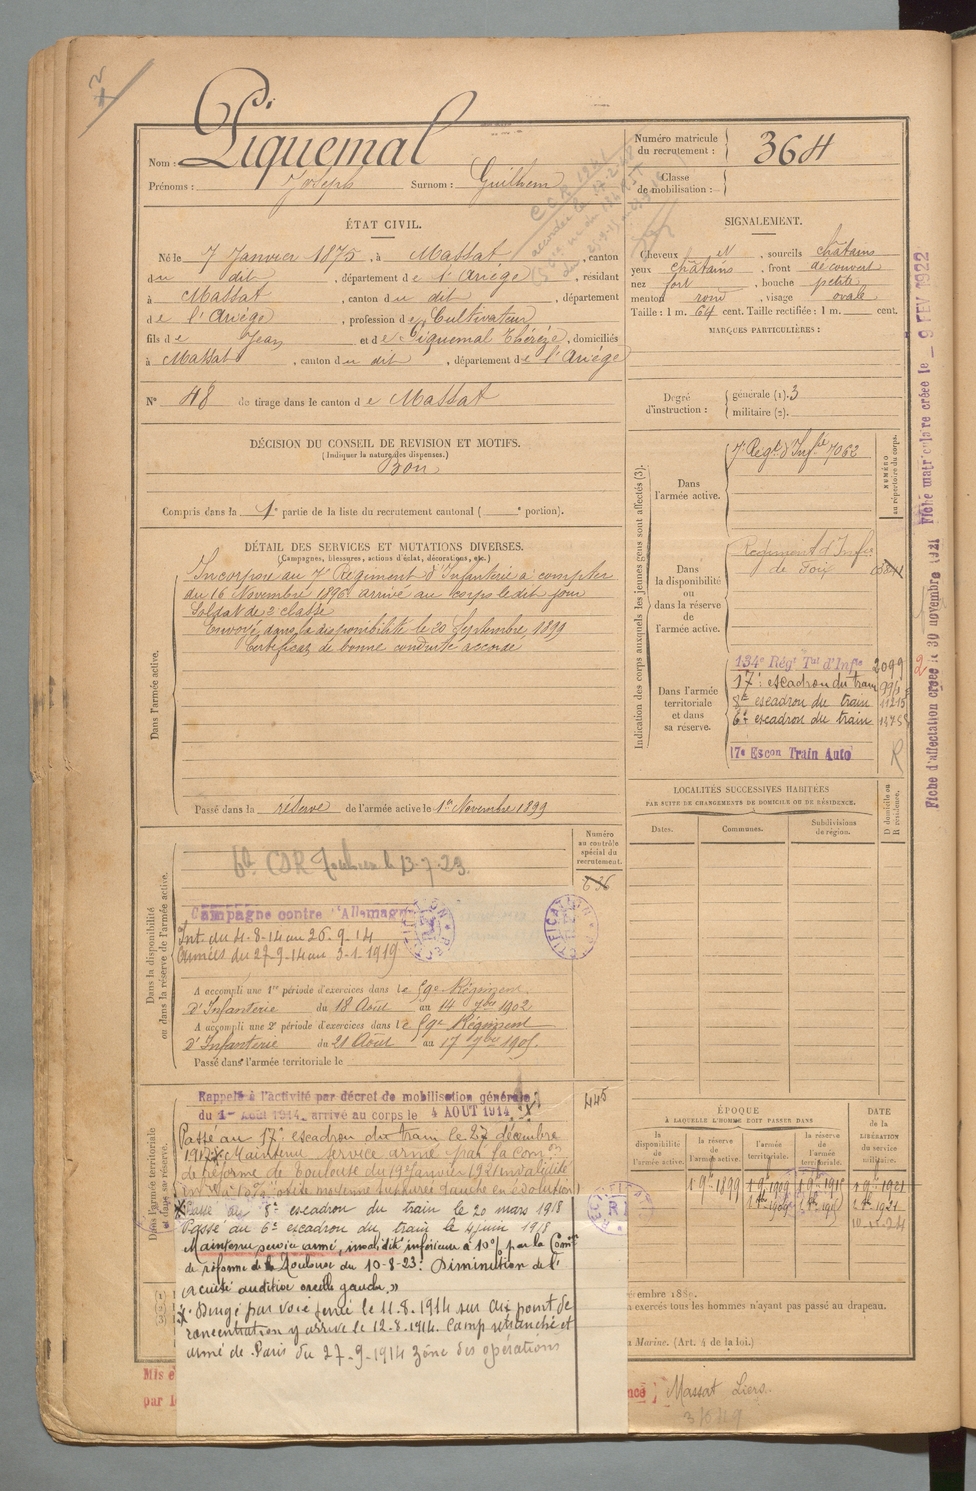 Nom : Piquemal
Prénoms : Joseph Surnom : Guilhem
Numéro matricule du recrutement : 364
Classe de mobilisation :
ÉTAT CIVIL.
Né le 7 Janvier 1875, à Massat, canton
du dit, département de l'Ariège, résidant
à Massat, canton du dit, département
de l'Ariège, profession de Cultivateur
fils de Jean et de Piquemal Thérèze, domiciliés
à Massat, canton du dit, département de l'Ariège
N° 48 de tirage dans le canton de Massat
SIGNALEMENT.
Cheveux N, sourcils châtains
yeux châtains, front découvert
nez fort, bouche petite
menton rond, visage ovale
Taille : 1 m. 64 cent. Taille rectifiée : 1 m. cent.
MARQUES PARTICULIÈRES :
Degré d'instruction : générale (1). 3
militaire (2).
DÉCISION DU CONSEIL DE REVISION ET MOTIFS.
(Indiquer la nature des dispenses.)
Bon
Compris dans la 1e partie de la liste du recrutement cantonal ( e portion).
DÉTAIL DES SERVICES ET MUTATIONS DIVERSES.
(Campagnes, blessures, actions d'éclat, décorations, etc.)
Dans l'armée active.
Incorporé au 7e Régiment d'Infanterie à compter
du 16 Novembre 1896 arrivé au corps le dit jour
Soldat de 2e classe
Envoyé dans la disponibilité le 20 Septembre 1899
Certificat de bonne conduite accordé
Passé dans la réserve de l'armée active le 1er Novembre 1899
Indication des corps auxquels les jeunes gens sont affectés (3).
NUMÉRO au répertoire du corps.
Dans l'armée active.
7e Regt d'Infie 7062
Dans la disponibilité ou dans la réserve de l'armée active.
Régiment d'Infie
de Foix
Dans l'armée territoriale et dans sa réserve.
134e Régt Tal d'Infie 2099
17e escadron du train
8e escadron du train
6e escadron du train
17e Escon Train Auto
R
LOCALITÉS SUCCESSIVES HABITÉES
PAR SUITE DE CHANGEMENTS DE DOMICILE OU DE RÉSIDENCE.
Dates. Communes. Subdivisions de région. D domicile ou R résidence.
Numéro au contrôle spécial du recrutement.
Dans la disponibilité ou dans la réserve de l'armée active.
Campagne contre l'Allemagne
Int. du 4-8-14 au 26-9-14
Armées du 27-9-14 au 3-1-1919
A accompli une 1re période d'exercices dans le 59e Régiment
d'Infanterie du 18 Août au 14 7bre 1902
A accompli une 2e période d'exercices dans le 59e Régiment
d'Infanterie du 21 Août au 17 7bre 1905
Passé dans l'armée territoriale le
Dans l'armée territoriale et dans sa réserve.
Rappelé à l'activité par décret de mobilisation générale
du 1er Août 1914, arrivé au corps le 4 AOUT 1914
Passé au 17e escadron du train le 27 décembre
Maintenu service armé par la Comon
de réforme de Toulouse du 19 Janvier 1921 invalidité
otite moyenne suppurée gauche en évolution
Passé au 8e escadron du train le 20 mars 1918
Passé au 6e escadron du train le 4 juin 1918
Maintenu service armé, invalidité inférieure à 10% par la Comon
de réforme de Toulouse du 10-8-23. Diminution de l'
acuité auditive oreille gauche. »
Dirigé par voie ferrée le 11.8.1914 sur un point de
concentration y arrive le 12.8.1914. Camp retranché et
armé de Paris du 27-9-1914 zône des opérations
ÉPOQUE
À LAQUELLE L'HOMME DOIT PASSER DANS
la disponibilité de l'armée active.
la réserve de l'armée active.
l'armée territoriale.
la réserve de l'armée territoriale.
DATE de la LIBÉRATION du service militaire.
a exercés tous les hommes n'ayant pas passé au drapeau.
Marine. (Art. 4 de la loi.)
Fiche d'affectation créée le 30 novembre 1921
Fiche matriculaire créée le 9 FEV 1922
Massat